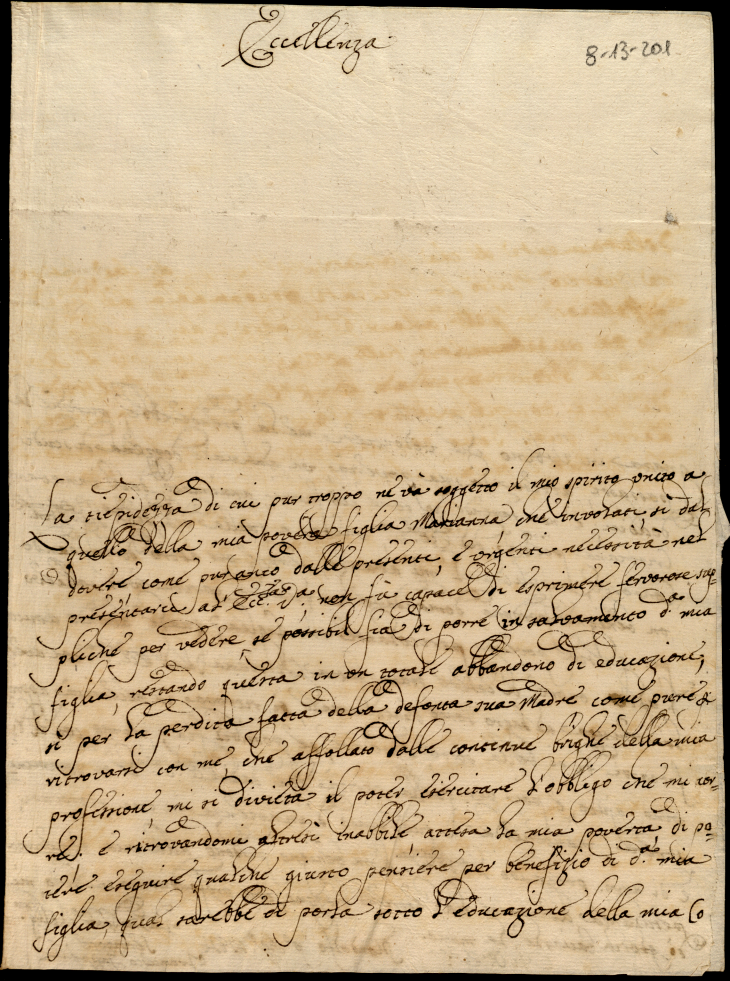 Eccellenza
8-13-201
La tiepidezza di cui pur troppo ne và soggetto il mio spirito unito a
quello della mia povera figlia Marianna che involati si dal
dovere come pur anco dalle presenti, e urgenti necessità nel
presentarci all' Ecc.za non fù capace di esprimere fervorose sup=
pliche per vedere, se possibil fia di porre in salvamento d.a mia
figlia, restando questa in un totale abbandono di educazione,
si per la perdita fatta della defonta sua Madre come pure
ritrovarsi con me che affollato dalle continue brighe della mia
professione, mi si divieta il poter esercitare l'obbligo che mi cor=
re: e ritrovandomi altresì inabbile attesa la mia povertà di po=
tere eseguire qualche giusto pensiere per benefizio di d.a mia
figlia, qual sarebbe di porla sotto l'educazione della mia Co